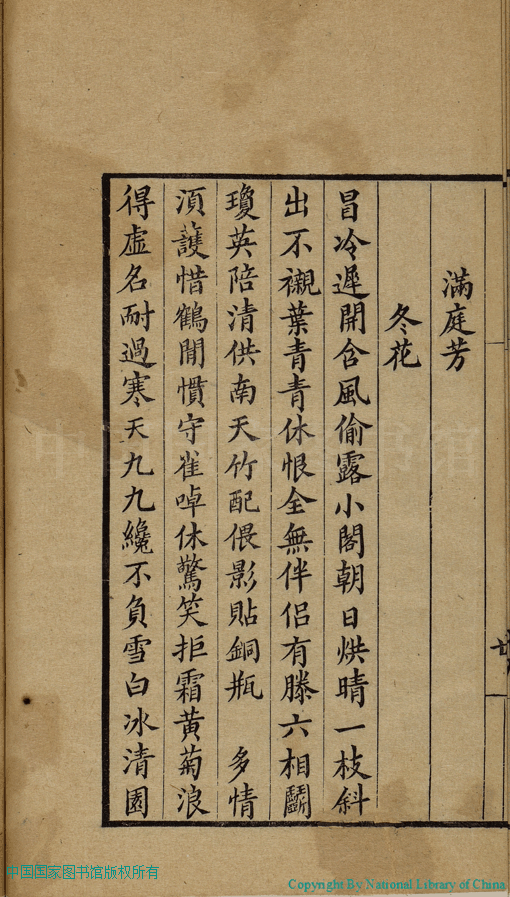 滿庭芳
冬花
冒冷遲開含風偷露小閣朝日烘晴一枝斜
出不襯葉青青休恨全無伴侶有滕六相鬭
瓊英陪清供南天竹配偎影貼銅瓶　多情
須護惜鶴閒慣守雀啅休驚笑拒霜黄菊浪
得虛名耐過寒天九九纔不負雪白冰清園
中国国家图书馆版权所有
Copyright By National Library of China